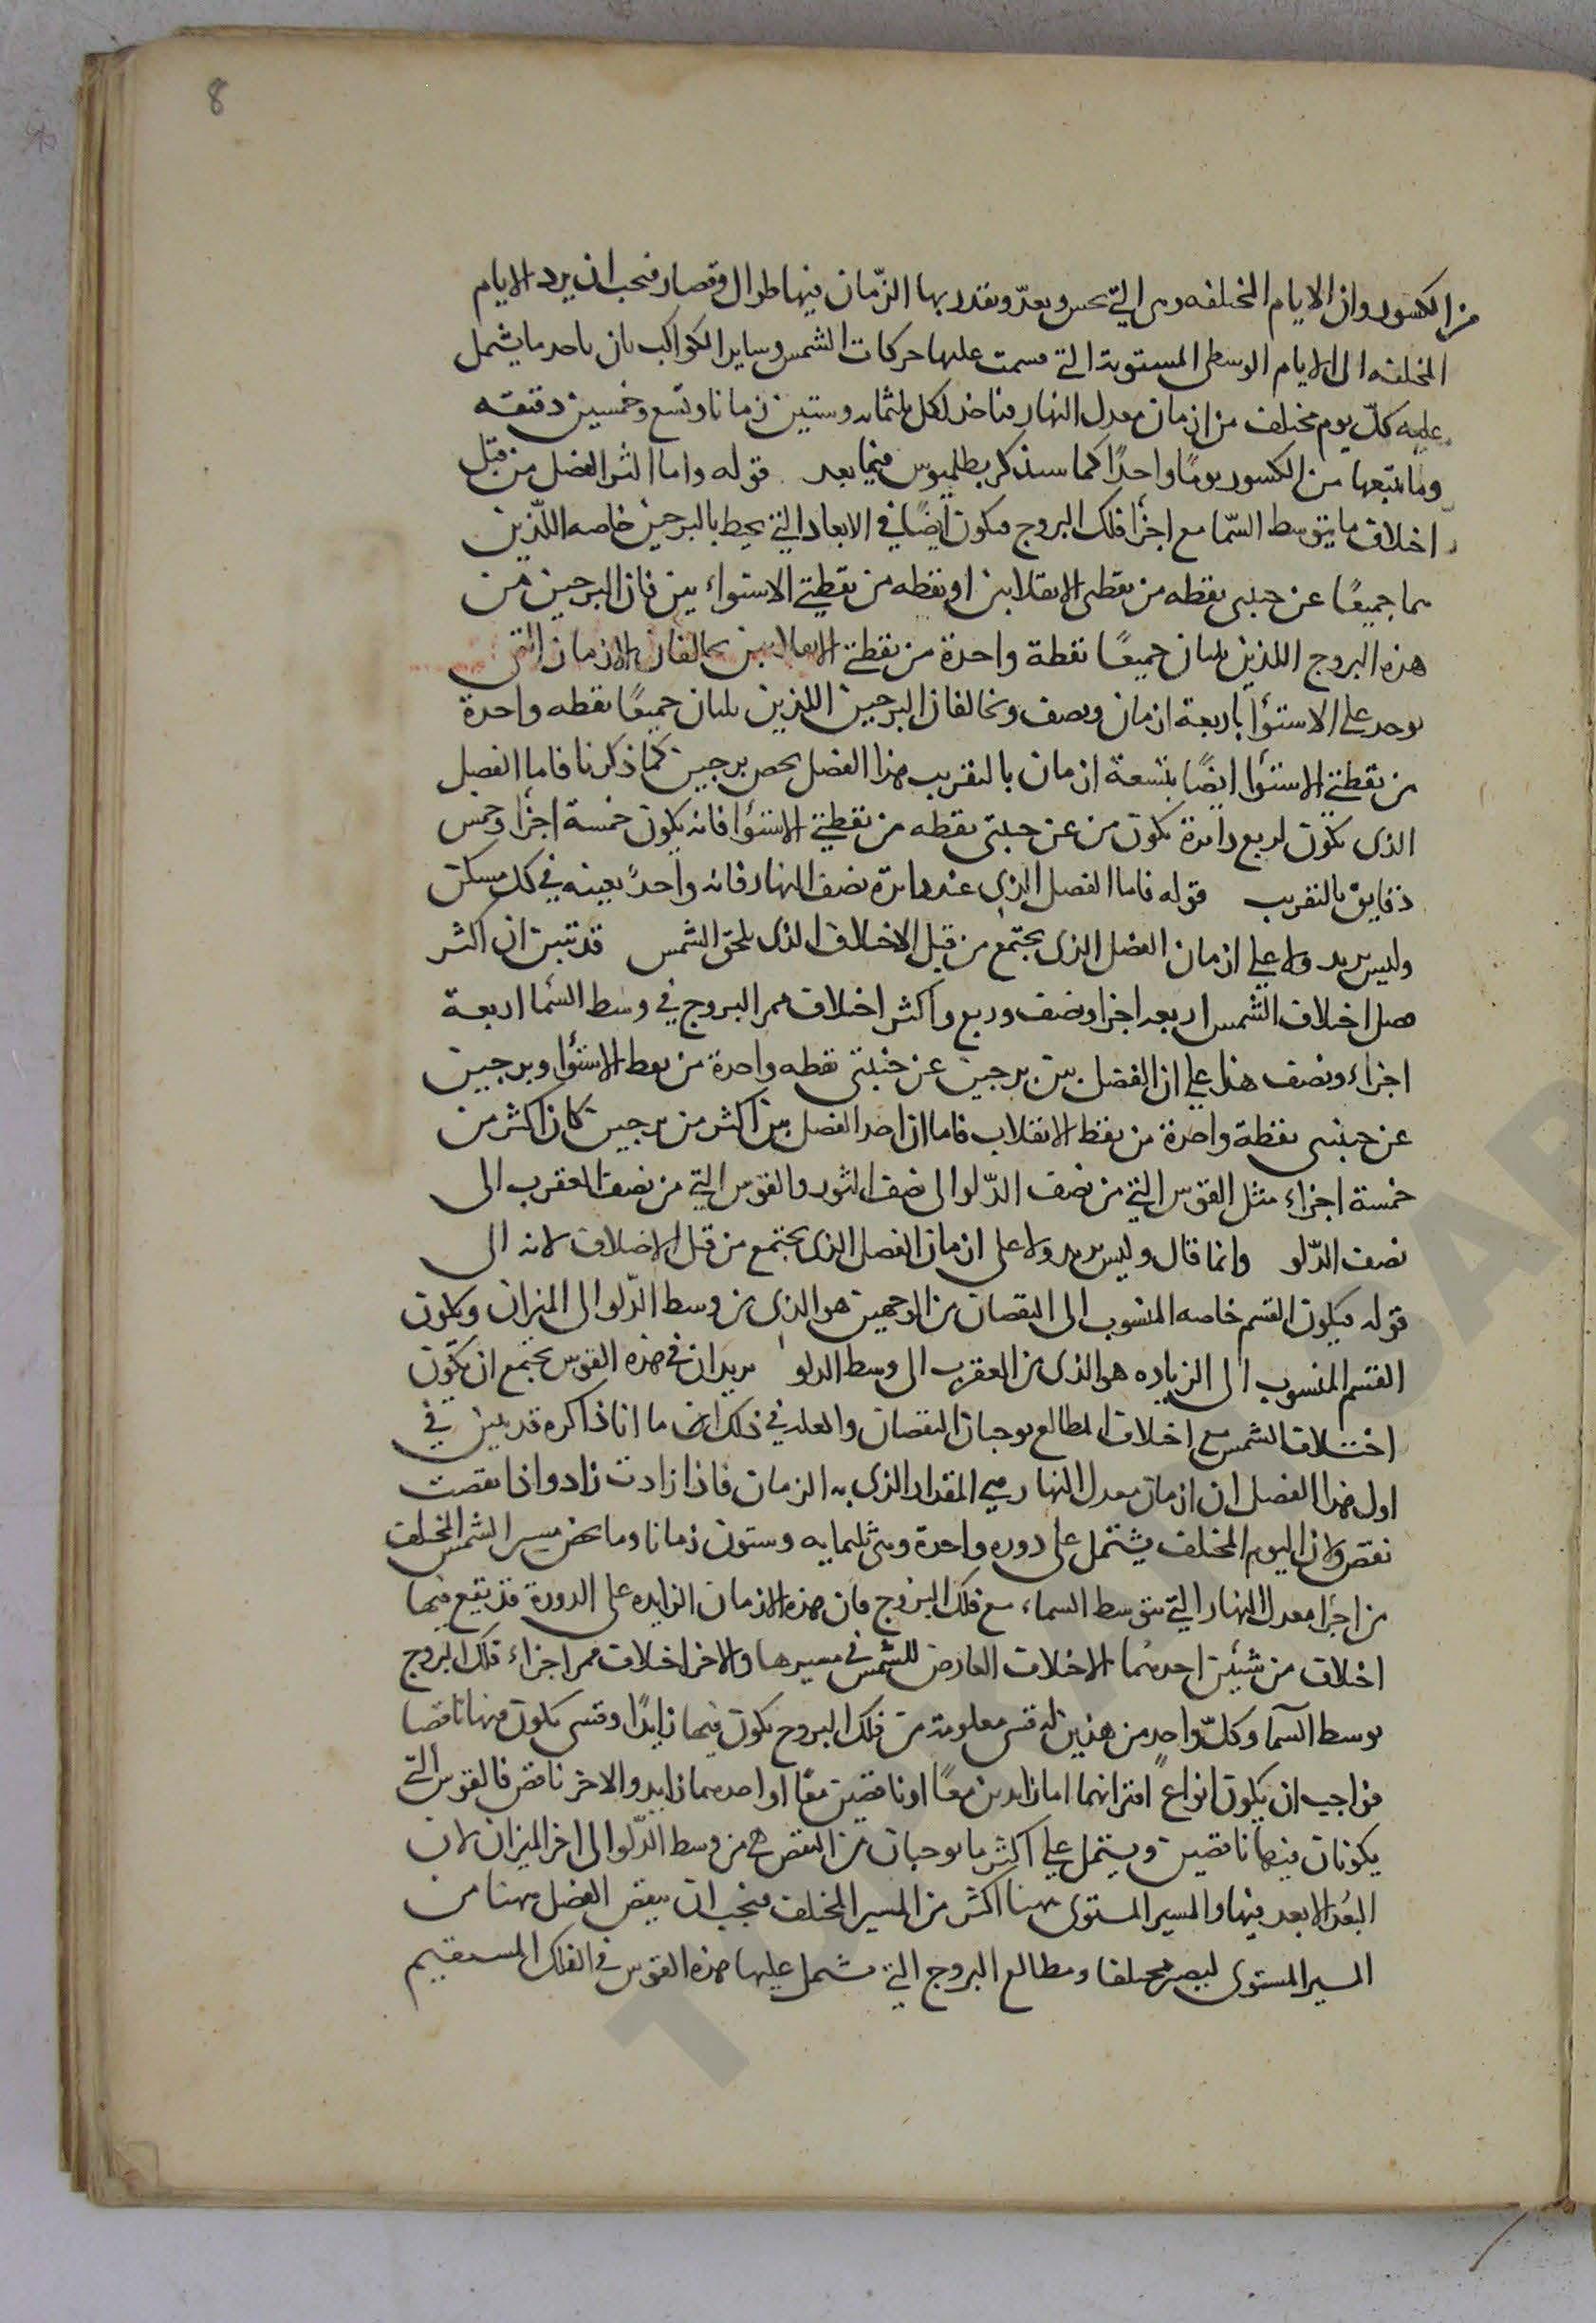 8
من الكسور وان الايام المختلفه وهى التي تحس وتعدّ ويقدر بها الزّمان فيها طوال وقصار فيجب ان يرد الايام
المختلفه الى الايام الوسطى المستوية التي قسمت عليها حركات الشمس وساير الكواكب بان ياخد ما يشمل
عليه كلّ يوم مختلف من ازمان معدل النهار فياخد لكل ثلثمايه وستين زمانا وتسع وخمسين دقيقه
وما يتبعها من الكسور يومًا واحدًا كما سنذكر بطلميوس فيما بعد قوله واما اكثر الفضل من قبل
اختلاف ما يتوسط السّما مع اجزا فلك البروج فيكون ايضًا في الابعاد التي يحيط بالبرجين خاصه اللّذين
هما جميعًا عن جنبتى نقطه من نقطى الانقلابين او نقطه من نقطتي الاستواء ين فان البرجين من
هذه البروج اللذين يليان جميعًا نقطة واحدة من نقطتي الانقلابين يخالفان الازمان التى
توجد على الاستوا باربعة ازمان ونصف ويخالفان البرجين اللذين يليان جميعًا نقطه واحدة
من نقطتي الاستوا ايضًا بتسعة ازمان بالتقريب هذا الفضل يخص برجين كما ذكرنا فاما الفصل
الذى يكون لربع دايرة يكون من عن جنبتى نقطه من نقطتي الاستوا فانه يكون خمسة اجزا وخمس
دقايق بالتقريب قوله فاما الفصل الذى عند دايرة نصف النهار فانه واحدً بعينه في كل مسكن
وليس يزيد ولا على ازمان الفضل الذى يجتمع من قبل الاختلاف الذى يلحق الشمس قد تبين ان اكثر
فصل اختلاف الشمس اربعه اجزا ونصف وربع واكثر اختلاف ممر البروج في وسط السما اربعة
اجزاء ونصف هذا على ان الفضل بين برجين عن جنبتى نقطه واحدة من نقط الاستوا وبرجين
عن جنبتى نقطة واحدة من نقط الانقلاب فاما ان اخذ الفصل بين اكثر من برجين كان اكثر من
خمسة اجزاء مثل القوس التي من نصف الدّلو الى نصف الثور والقوس التي من نصف العقرب الى
نصف الدّلو وانما قال وليس يزيد ولا على ازمان الفصل الذى يجتمع من قبل الاختلاف لانه الى
قوله فيكون القسم خاصه المنسوب الى النقصان من الوجهين هو الذى من وسط الدّلو الى الميزان ويكون
القسم المنسوب الى الزياده هو الذى من العقرب الى وسط الدلو يريد ان في هذه القوس يجتمع ان يكون
اختلاف الشمس مع اختلاف المطالع يوجبان النقصان والعله في ذلك ما انا ذاكره قد تبين في
اول هذا الفصل ان ازمان معدل النهار هي المقدار الذى به الزمان فاذا زادت زاد واذا نقصت
نقص ولان اليوم المختلف يشتمل على دوره واحدة وهى ثلثمايه وستون زمانا وما يخص مسير الشمس المختلف
من اجزا معدل النهار التي تتوسط السماء مع فلك البروج فان هذه الازمان الزايده على الدورة قد يقع فيها
اختلاف من شيئين احدهما الاختلاف العارض للشمس في مسيرها والاخر اختلاف ممر اجزاء فلك البروج
بوسط السما وكلّ واحد من هذين له قسى معلومة من فلك البروج يكون فيها زايدًا وقسى يكون فيها ناقصا
فواجب ان يكون انواع اقترانهما اما زايدين معًا او ناقصين معًا او احدهما زايد والاخر ناقص فالقوس التي
يكونان فيها ناقصين ويشتمل على اكثر ما يوجبان من النقص هي من وسط الدّلو الى اخر الميزان لان
البُعد الابعد فيها والمسير المستوى ههنا اكثر من المسير المختلف فيجب ان ينقص الفضل ههنا من
المسير المستوى ليصير مختلفا ومطالع البروج التي يشمل عليها هذه القوس في الفلك المستقيم